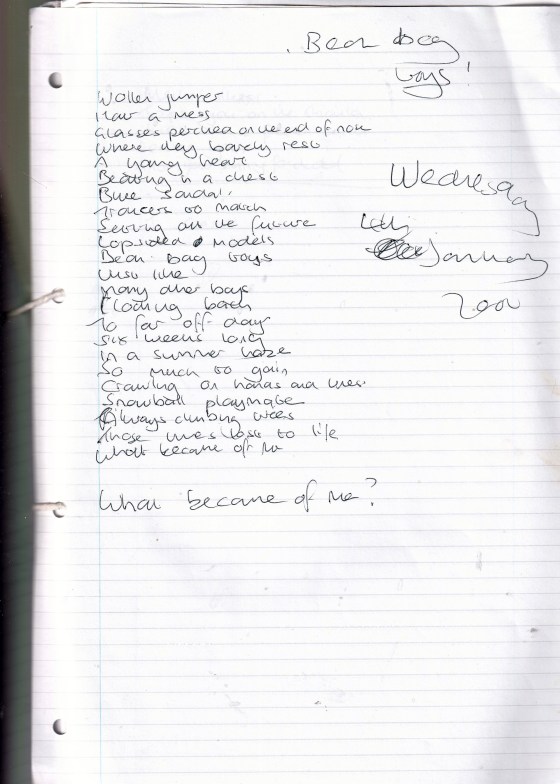 Bean bag
toys!
Wollen jumper
Hair a mess
Glasses perched on the end of nose
Where they barely rest
A young heart
Beating in a chest
Blue sandals
Trousers to match
Seeing all the future
Lopsided models
Bean bag toys
Many other boys
back
To far off days
Six weeks long
In a summer haze
So much to gain
Crawling on hands and knees
Snowball playmate
Always climbing trees
Those lost to life
What became of me
What became of me?
Wednesday
January